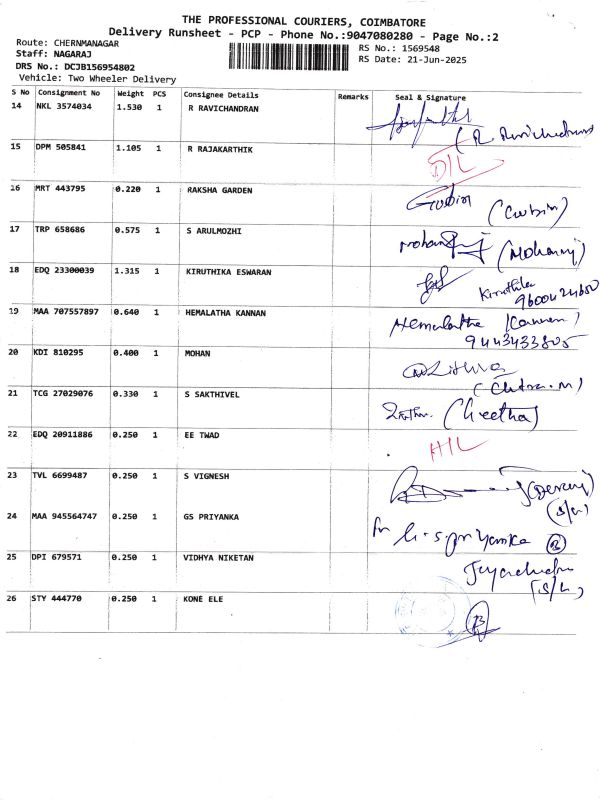 THE PROFESSIONAL COURIERS, COIMBATORE
Delivery Runsheet - PCP - Phone No.:9047080280 - Page No.:2
Route: CHERNMANAGAR
RS No.: 1569548
Staff: NAGARAJ
RS Date: 21-Jun-2025
DRS No.: DCJB156954802
Vehicle: Two Wheeler Delivery
S No Consignment No Weight PCS Consignee Details Remarks Seal & Signature
14 NKL 3574034 1.530 1 R RAVICHANDRAN
(R Ravichandran
15 DPM 505841 1.105 1 R RAJAKARTHIK
D/L
16 MRT 443795 0.220 1 RAKSHA GARDEN
Gobin
(Gobin)
17 TRP 658686 0.575 1 S ARULMOZHI
Mohanraj (Mohanraj)
18 EDQ 23300039 1.315 1 KIRUTHIKA ESWARAN
Kiruthika
9600424680
19 MAA 707557897 0.640 1 HEMALATHA KANNAN
Hemalatha (Kannan)
9443433805
20 KDI 810295 0.400 1 MOHAN
(Chitra.M)
21 TCG 27029076 0.330 1 S SAKTHIVEL
(Geetha)
22 EDQ 20911886 0.250 1 EE TWAD
H/L
23 TVL 6699487 0.250 1 S VIGNESH
(S/G)
24 MAA 945564747 0.250 1 GS PRIYANKA
for G.S priyanka
25 DPI 679571 0.250 1 VIDHYA NIKETAN
Jayachandran
(S/G)
26 STY 444770 0.250 1 KONE ELE